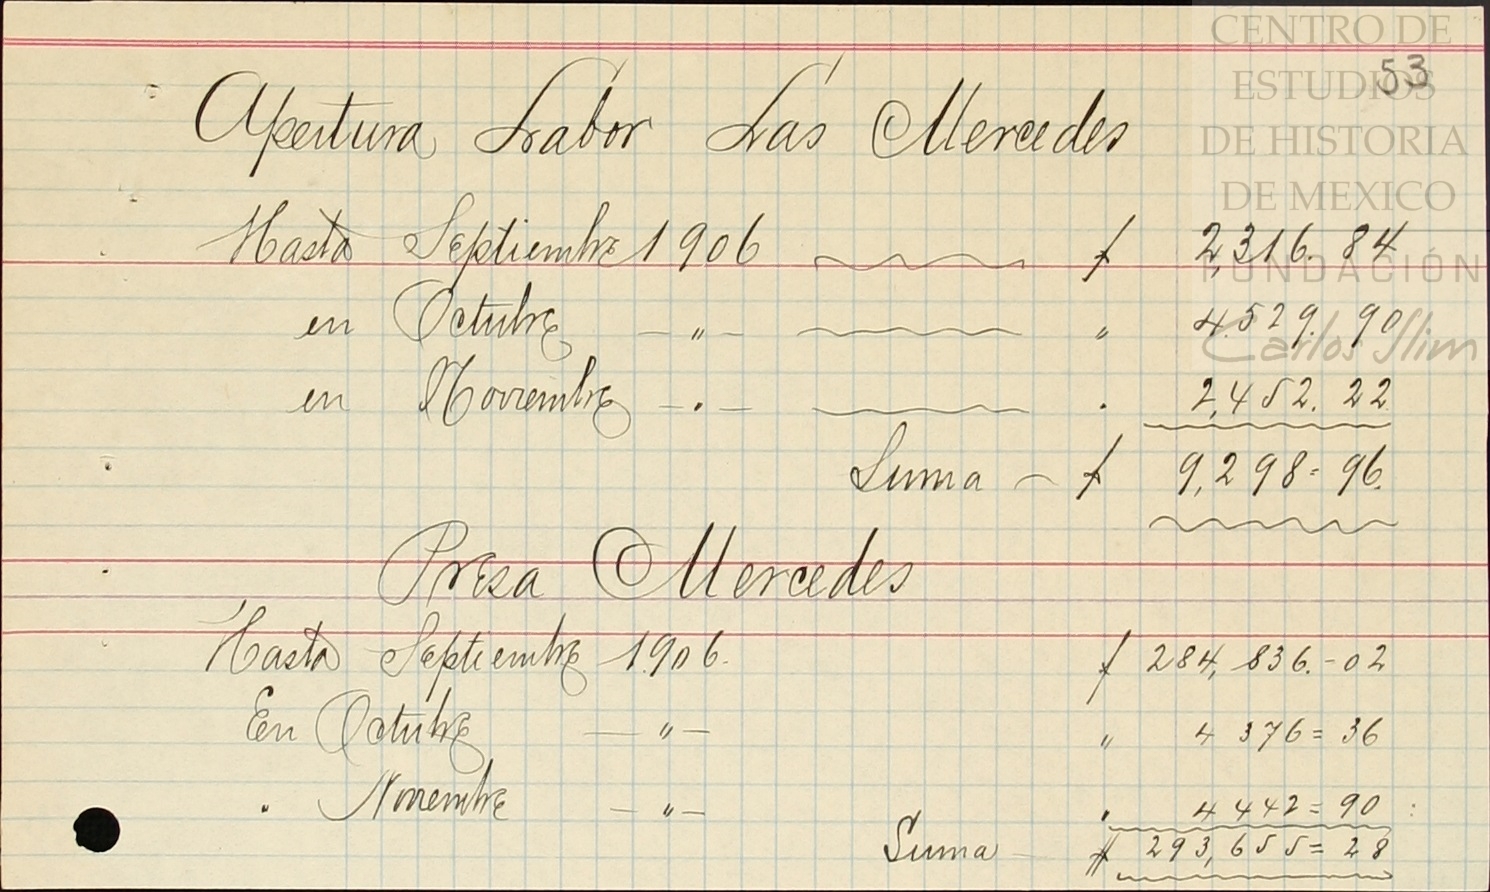 CENTRO DE
ESTUDIOS
DE HISTORIA
DE MEXICO
FUNDACIÓN
Carlos Slim
53
Apertura Labor Las Mercedes
Hasta Septiembre 1906 $ 2,316. 84
en Octubre — " — " 4.529. 90
en Noviembre — . — . 2,452. 22
Suma — $ 9,298 = 96.
Presa Mercedes
Hasta Septiembre 1906. $ 284,836.-02
En Octubre — " — " 4 376 = 36
. Noviembre — " — " 4 442 = 90
Suma $ 293,655 = 28